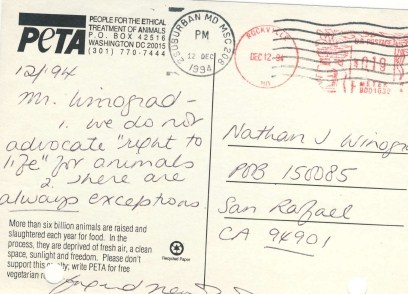 PETA
PEOPLE FOR THE ETHICAL
TREATMENT OF ANIMALS
P.O. BOX 42516
WASHINGTON DC 20015
(301) 770-7444
SUBURBAN MD MSC 208
PM
12 DEC
1994
ROCKVILLE
DEC 12 '94
MD
019
METER
12/94
Mr. Winograd -
1. We do not
advocate "right to
life" for animals
2. There are
always exceptions.
Nathan J Winogra
POB 150085
San Rafael
CA 94901
More than six billion animals are raised and
slaughtered each year for food. In the
process, they are deprived of fresh air, a clean
space, sunlight and freedom. Please don't
support this; write PETA for free
vegetarian
Recycled Paper